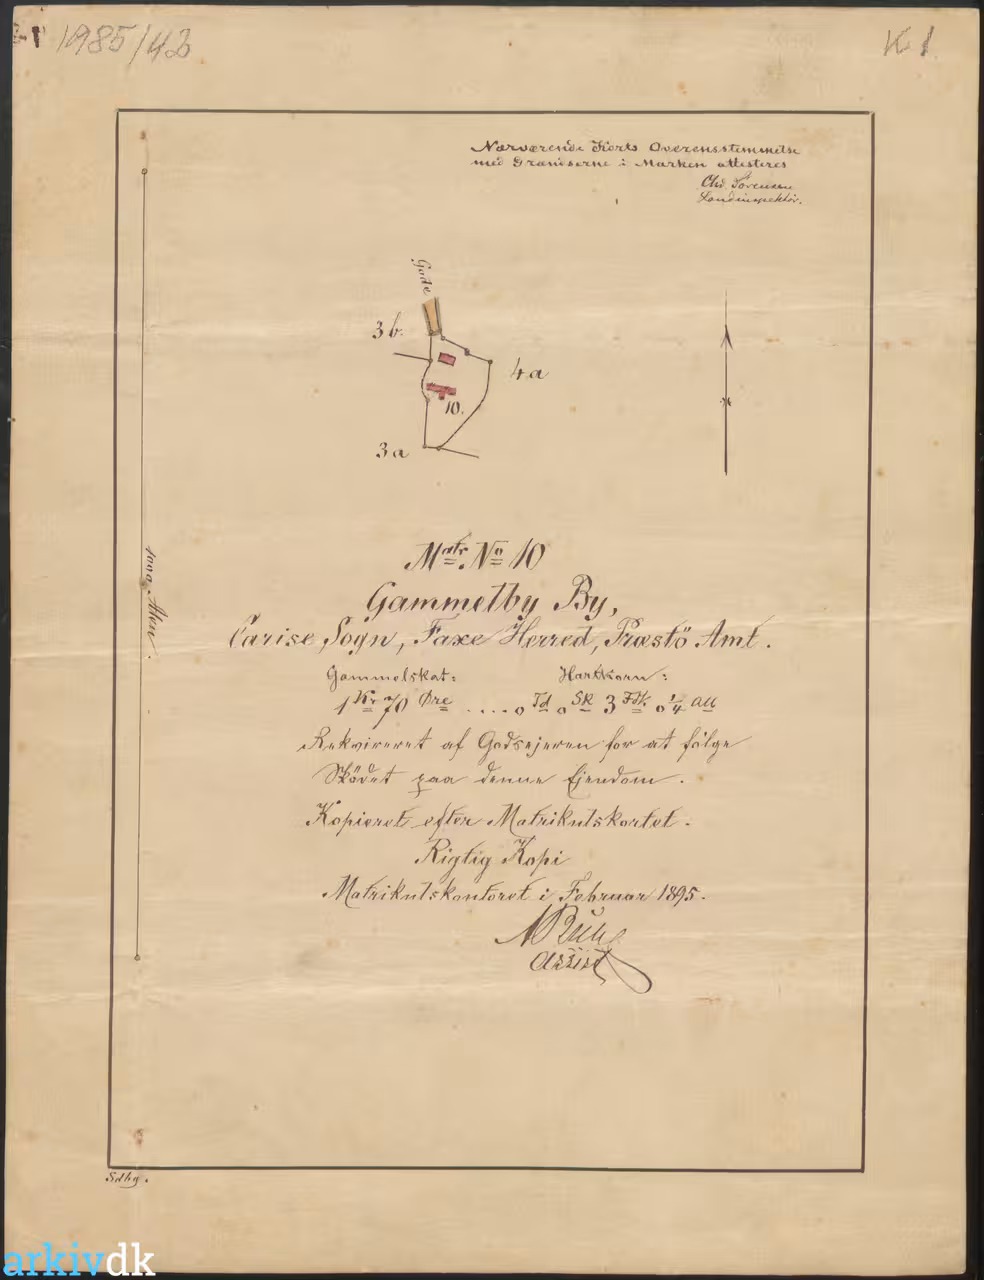 1985/42
K 1
Nærværende Korts Overensstemmelse
med Grændserne i Marken attesteres
Chr. Sørensen
Landinspektör.
Gade
3 b.
4 a
10.
3 a
1000 Alen.
Matr. No 10
Gammelby By,
Carise Sogn, Faxe Herred, Præstö Amt.
Gammelskat: Hartkorn:
1 Kr 70 Øre .... 0 Td 0 Sk 3 Fdk 0 1/4 Alb
Rekvireret af Godsejeren for at fölge
Sködet paa denne Ejendom.
Kopieret efter Matrikulskortet.
Rigtig Kopi
Matrikulskontoret i Februar 1895.
Assist
Sdbg.
arkivdk